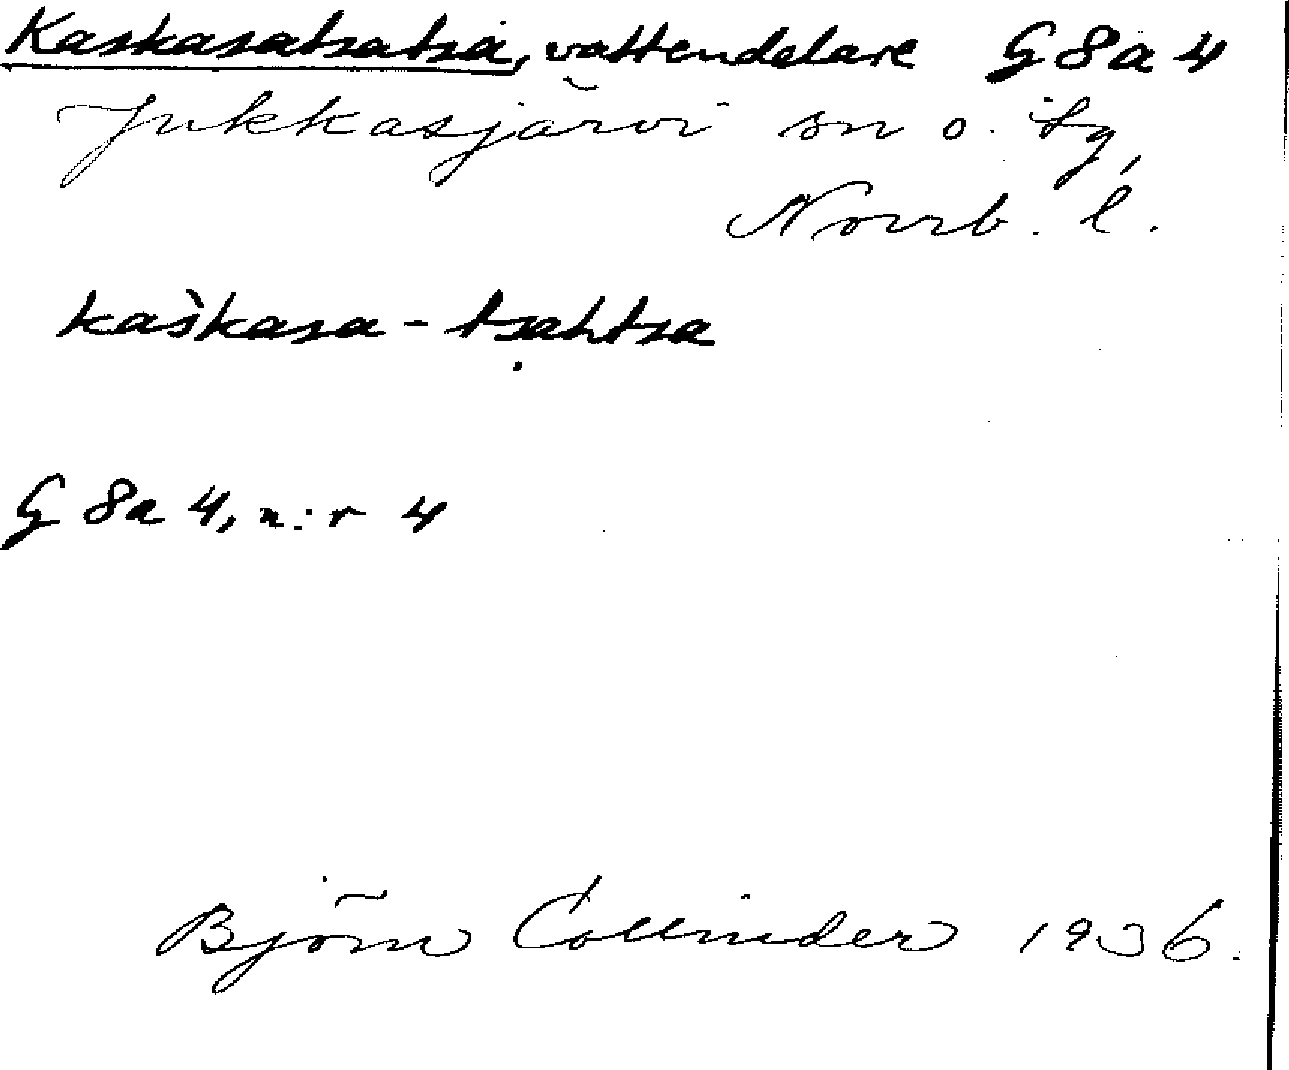 Kaskasatsatsa, vattendelare G 8 a 4
Jukkasjärvi sn o. tg,
Norrb. l.
kaškasa-tsahtsa
G 8a 4, n:r 4
Björn Collinder 1936.